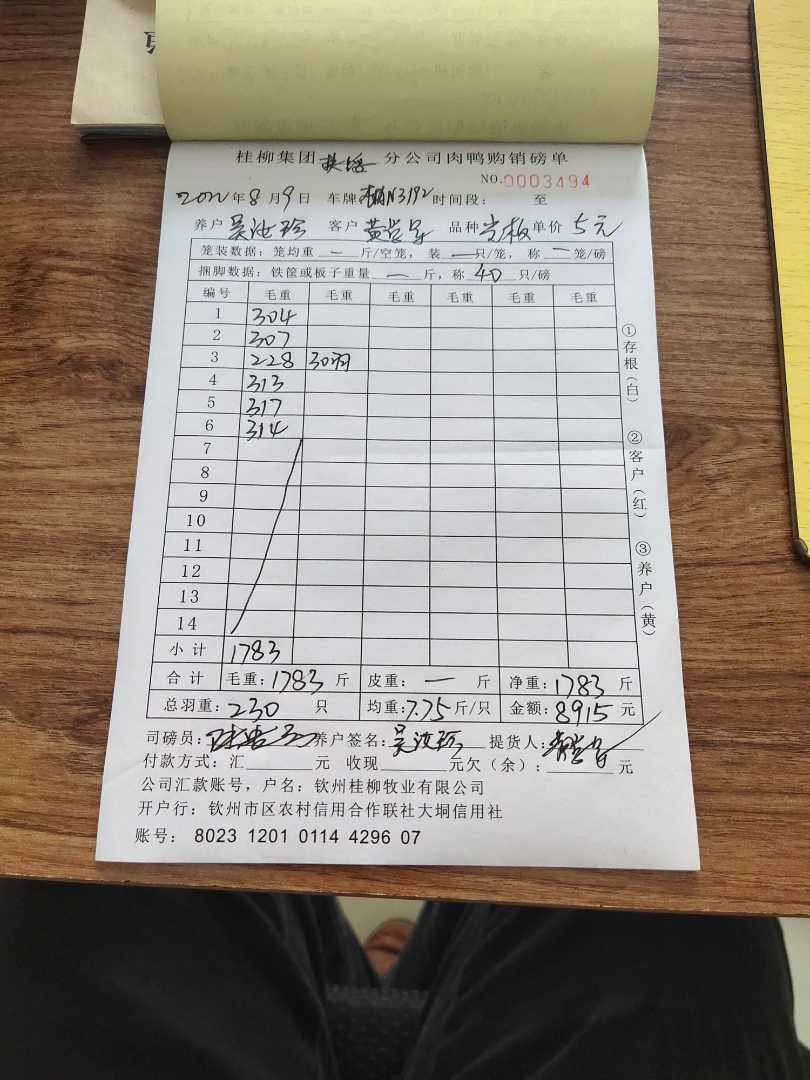 桂柳集团 分公司肉鸭购销磅单
NO.0003494
2022年8月9日 车牌 N3192 时间段： 至
养户 吴汝珍 客户 黄 品种 光板 单价 5元
笼装数据：笼均重 一 斤/空笼，装 一 只/笼，称 一 笼/磅
捆脚数据：铁筐或板子重量 一 斤，称 40 只/磅
编号 毛重 毛重 毛重 毛重 毛重 毛重
1 304
2 307
3 228 30羽
4 313
5 317
6 314
7
8
9
10
11
12
13
14
小计 1783
合计 毛重：1783 斤 皮重：一 斤 净重：1783 斤
总羽重：230 只 均重：7.75 斤/只 金额：8915 元
司磅员： 养户签名：吴汝珍 提货人：
付款方式：汇 元 收现 元欠（余）： 元
公司汇款账号，户名：钦州桂柳牧业有限公司
开户行：钦州市区农村信用合作联社大垌信用社
账号： 8023 1201 0114 4296 07
①存根（白）
②客户（红）
③养户（黄）